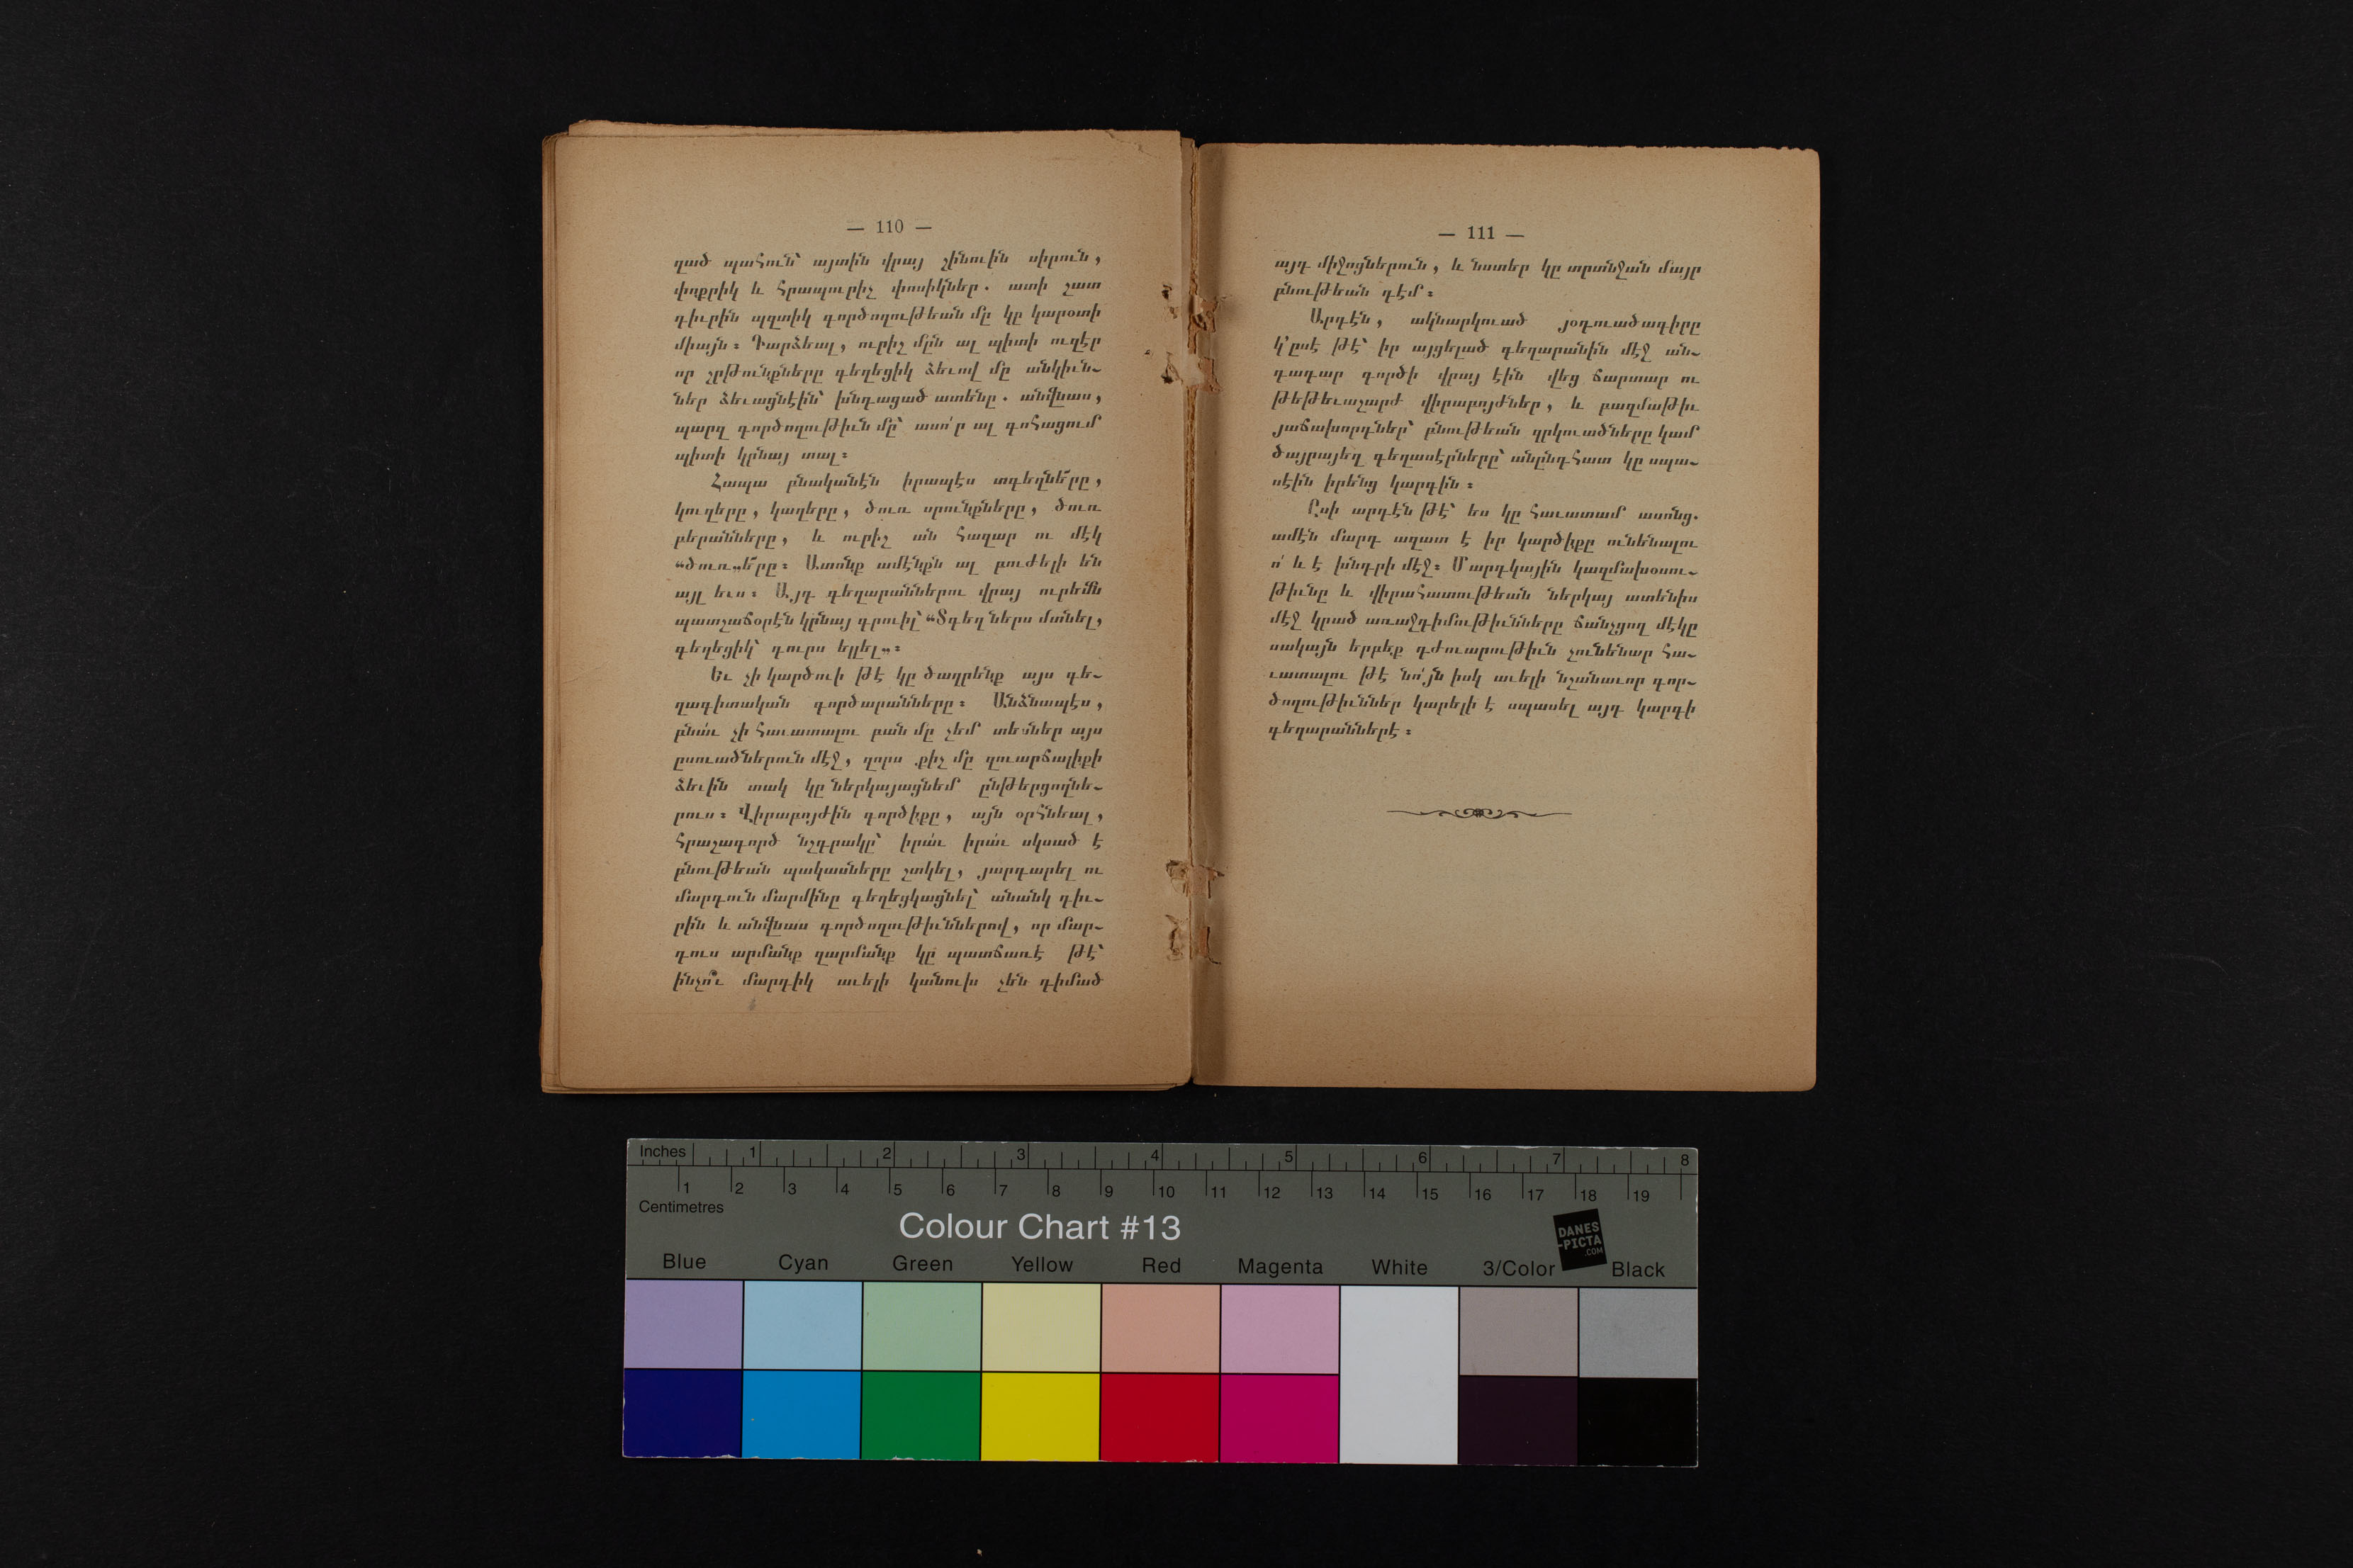 — 110 —
ղած պահուն՝ այտին վրայ շինուին սիրուն,
փոքրիկ և հրապուրիչ փոսիկներ. ատի շատ
դիւրին պզտիկ գործողութեան մը կը կարօտի
միայն։ Դարձեալ, ուրիշ մըն ալ պիտի ուզէր
որ շրթունքները գեղեցիկ ձեւով մը անկիւն-
ներ ձեւացնէին՝ խնդացած ատենը. անվնաս,
պարզ գործողութիւն մը՝ ասո՛ր ալ գոհացում
պիտի կրնայ տալ։
Հապա բնականէն իրապէս տգեղնե՜րը,
կուզերը, կաղերը, ծուռ սրունքները, ծուռ
բերանները, և ուրիշ ան հազար ու մէկ
“ծուռ„ե՜րը։ Ատոնք ամէնքն ալ բուժելի են
այլ եւս։ Այդ գեղարաններու վրայ ուրեմն
պատշաճօրէն կրնայ գրուիլ՝ “Տգեղ ներս մտնել,
գեղեցիկ՝ դուրս ելլել„։
Եւ չի կարծուի թէ կը ծաղրենք այս գե-
ղագիտական գործարանները։ Անձնապէս,
բնա՛ւ չի հաւատալու բան մը չեմ տեսներ այս
ըսուածներուն մէջ, զորս քիչ մը զուարճալիքի
ձեւին տակ կը ներկայացնեմ ընթերցողնե-
րուս։ Վիրաբոյժին գործիքը, այն օրհնեալ,
հրաշագործ նշդրակը՝ իրա՛ւ իրա՛ւ սկսած է
բնութեան պակասները շտկել, յարդարել ու
մարդուն մարմինը գեղեցկացնել՝ անանկ դիւ-
րին և անվնաս գործողութիւններով, որ մար-
դուս արմանք զարմանք կը պատճառէ թէ՝
ինչո՞ւ մարդիկ աւելի կանուխ չեն դիմած
— 111 —
այդ միջոցներուն, և նստեր կը տրտնջան մայր
բնութեան դէմ։
Արդէն, ակնարկուած յօդուածագիրը
կ՚ըսէ թէ՝ իր այցելած գեղարանին մէջ ան-
դադար գործի վրայ էին վեց ճարտար ու
թեթեւաշարժ վիրաբոյժներ, և բազմաթիւ
յաճախորդներ՝ բնութեան զրկուածները կամ
ծայրայեղ գեղասէրները՝ անընդհատ կը սպա-
սէին իրենց կարգին։
Ըսի արդէն թէ՝ ես կը հաւատամ ասոնց.
ամէն մարդ ազատ է իր կարծիքը ունենալու
ո՛ և է խնդրի մէջ։ Մարդկային կազմախօսու-
թիւնը և վիրահատութեան ներկայ ատենիս
մէջ կրած առաջդիմութիւնները ճանչցող մէկը
սակայն երբեք դժուարութիւն չունենար հա-
ւատալու թէ նո՛յն իսկ աւելի նշանաւոր գոր-
ծողութիւններ կարելի է սպասել այդ կարգի
գեղարաններէ։
Inches 1 2 3 4 5 6 7 8
1 2 3 4 5 6 7 8 9 10 11 12 13 14 15 16 17 18 19
Centimetres
Colour Chart #13
DANES
-PICTA
.COM
Blue Cyan Green Yellow Red Magenta White 3/Color Black